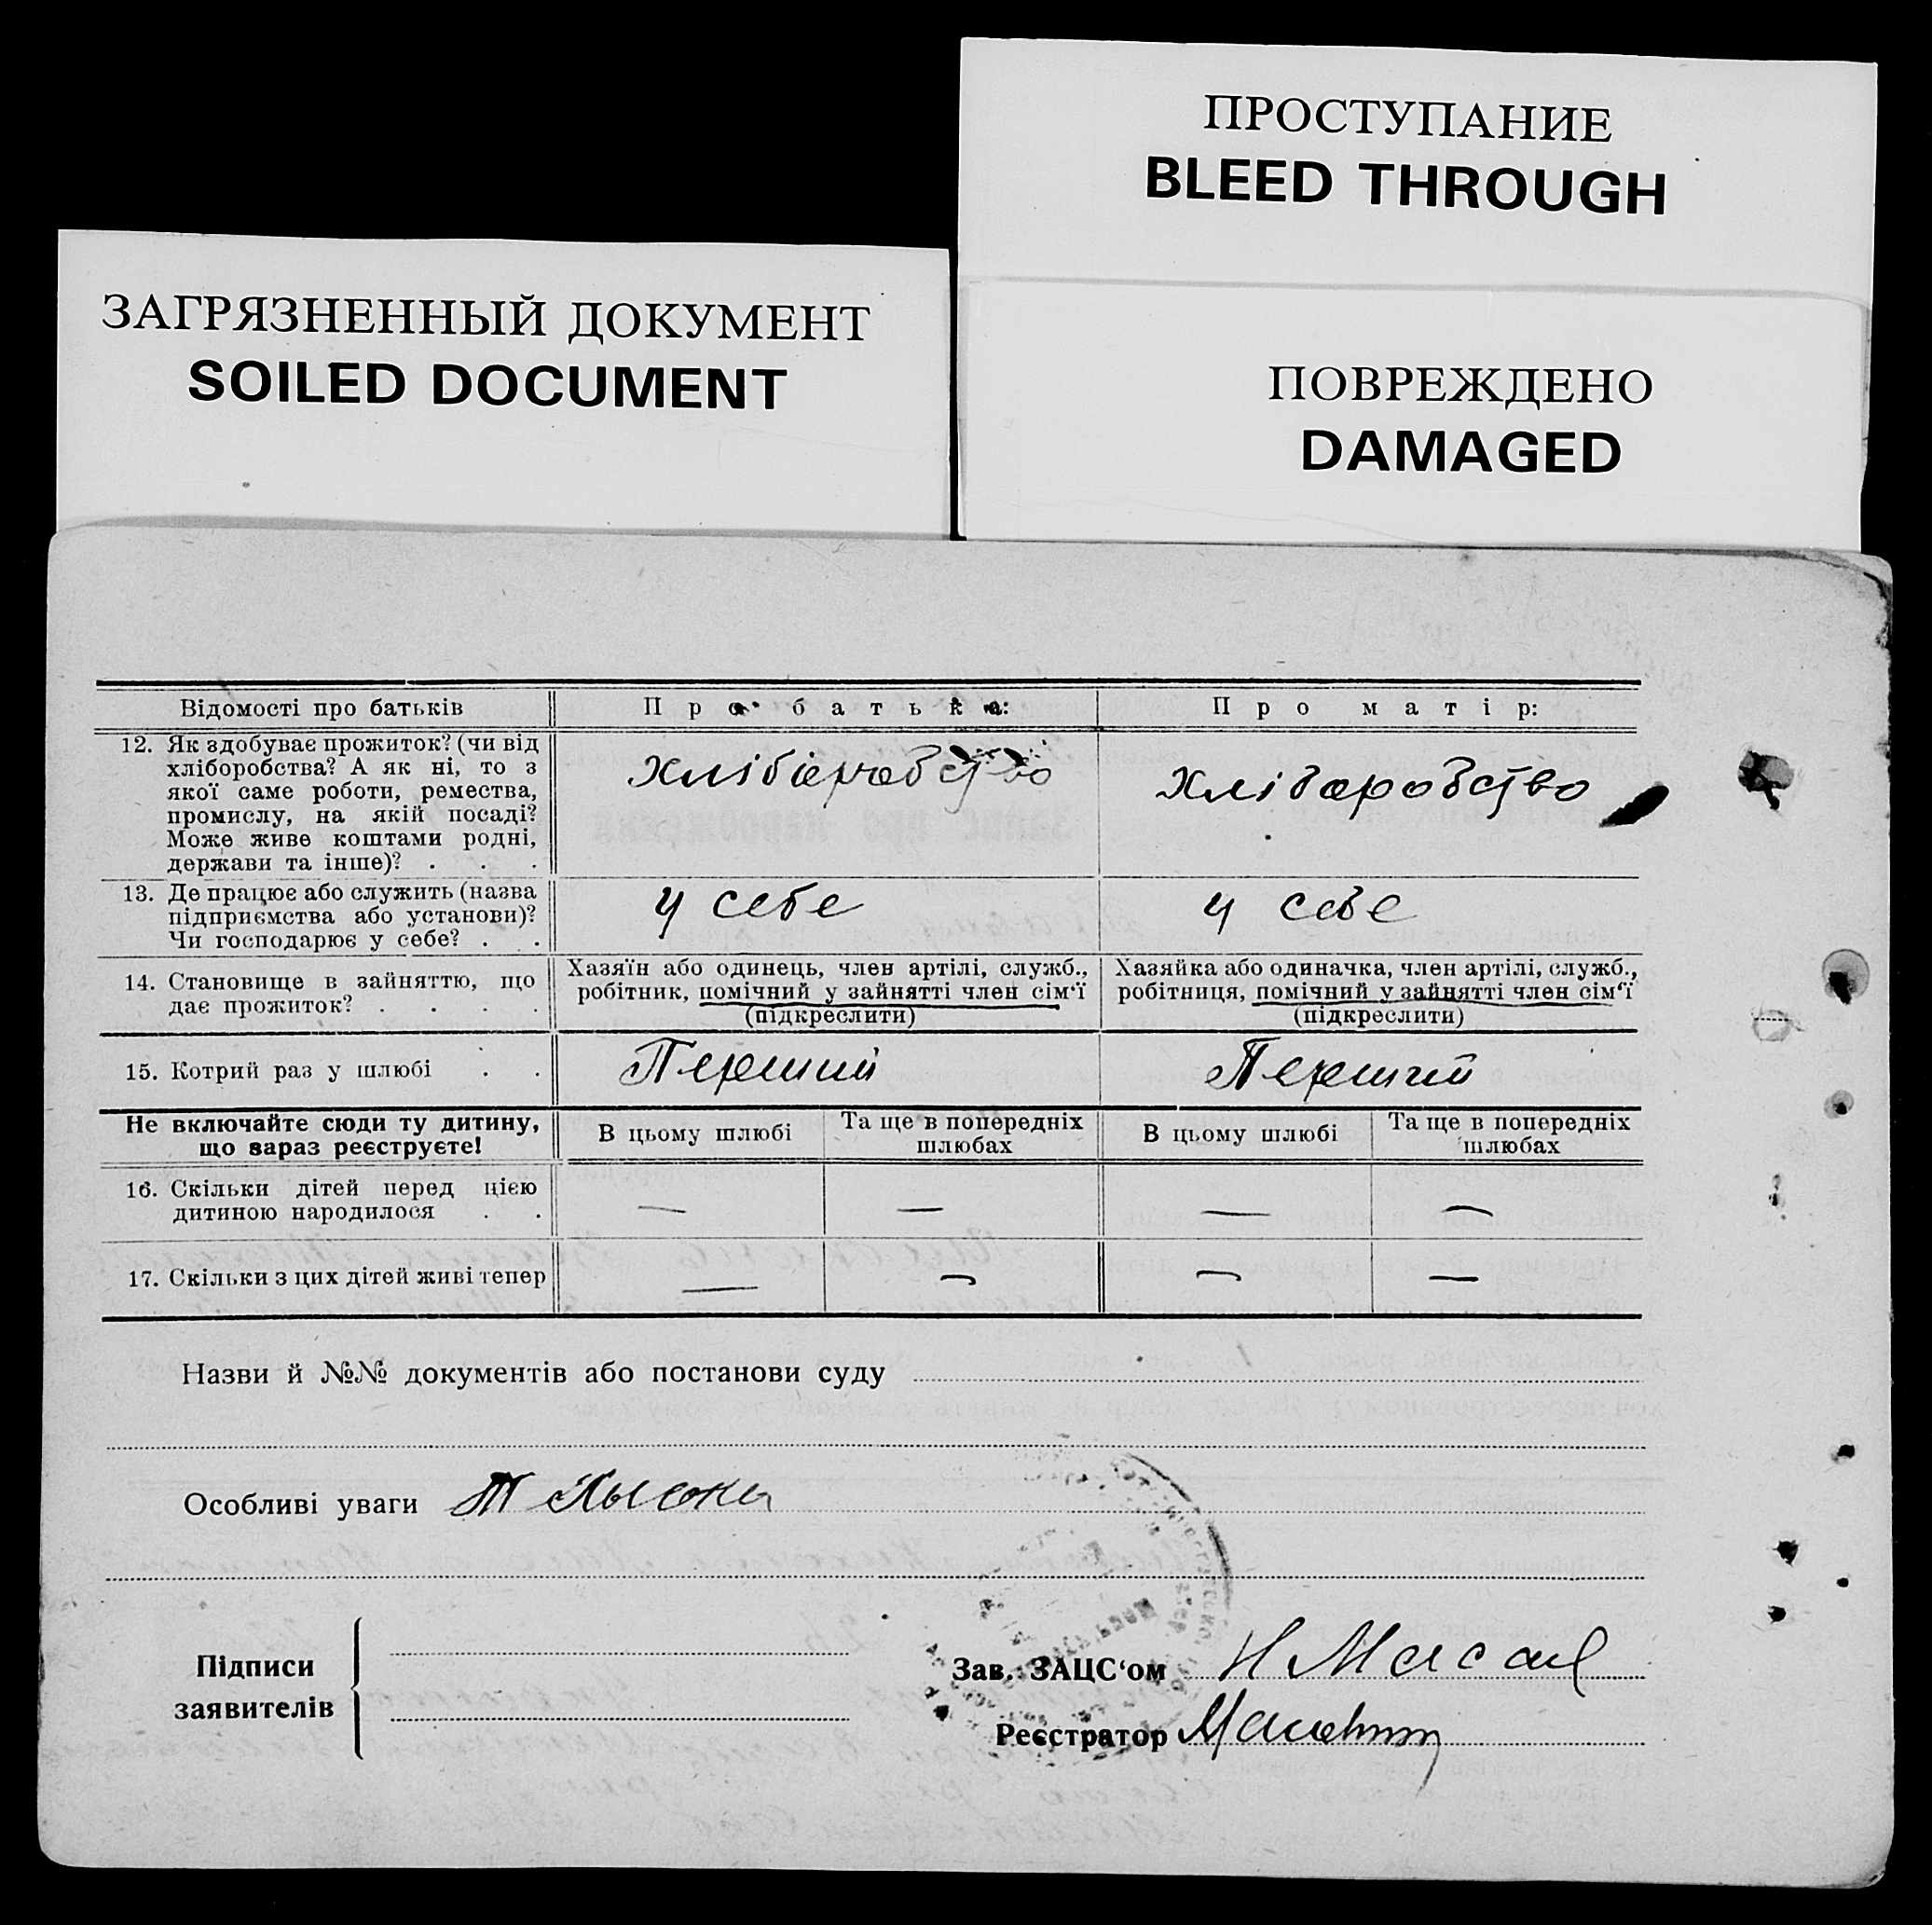 ПРОСТУПАНИЕ
BLEED THROUGH
ЗАГРЯЗНЕННЫЙ ДОКУМЕНТ
SOILED DOCUMENT
ПОВРЕЖДЕНО
DAMAGED
Відомості про батьків Про батька: Про матір:
12. Як здобуває прожиток? (чи від
хліборобства? А як ні, то з
якої саме роботи, ремества,
промислу, на якій посаді?
Може живе коштами родні,
держави та інше)? . . .
хлібаробство хлібаробство
13. Де працює або служить (назва
підприємства або установи)?
Чи господарює у себе? . .
у себе у себе
14. Становище в зайняттю, що
дає прожиток? . . . .
Хазяїн або одинець, член артілі, служб.,
робітник, помічний у зайнятті член сім‘ї
(підкреслити)
Хазяйка або одиначка, член артілі, служб.,
робітниця, помічний у зайнятті член сім‘ї
(підкреслити)
15. Котрий раз у шлюбі . . Перший Перший
Не включайте сюди ту дитину,
що зараз реєструєте!
В цьому шлюбі
Та ще в попередніх
шлюбах
В цьому шлюбі
Та ще в попередніх
шлюбах
16. Скільки дітей перед цією
дитиною народилося . .
— — — —
17. Скільки з цих дітей живі тепер — — — —
Назви й №№ документів або постанови суду
Особливі уваги
Підписи
заявителів
Зав. ЗАЦС‘ом
Реєстратор